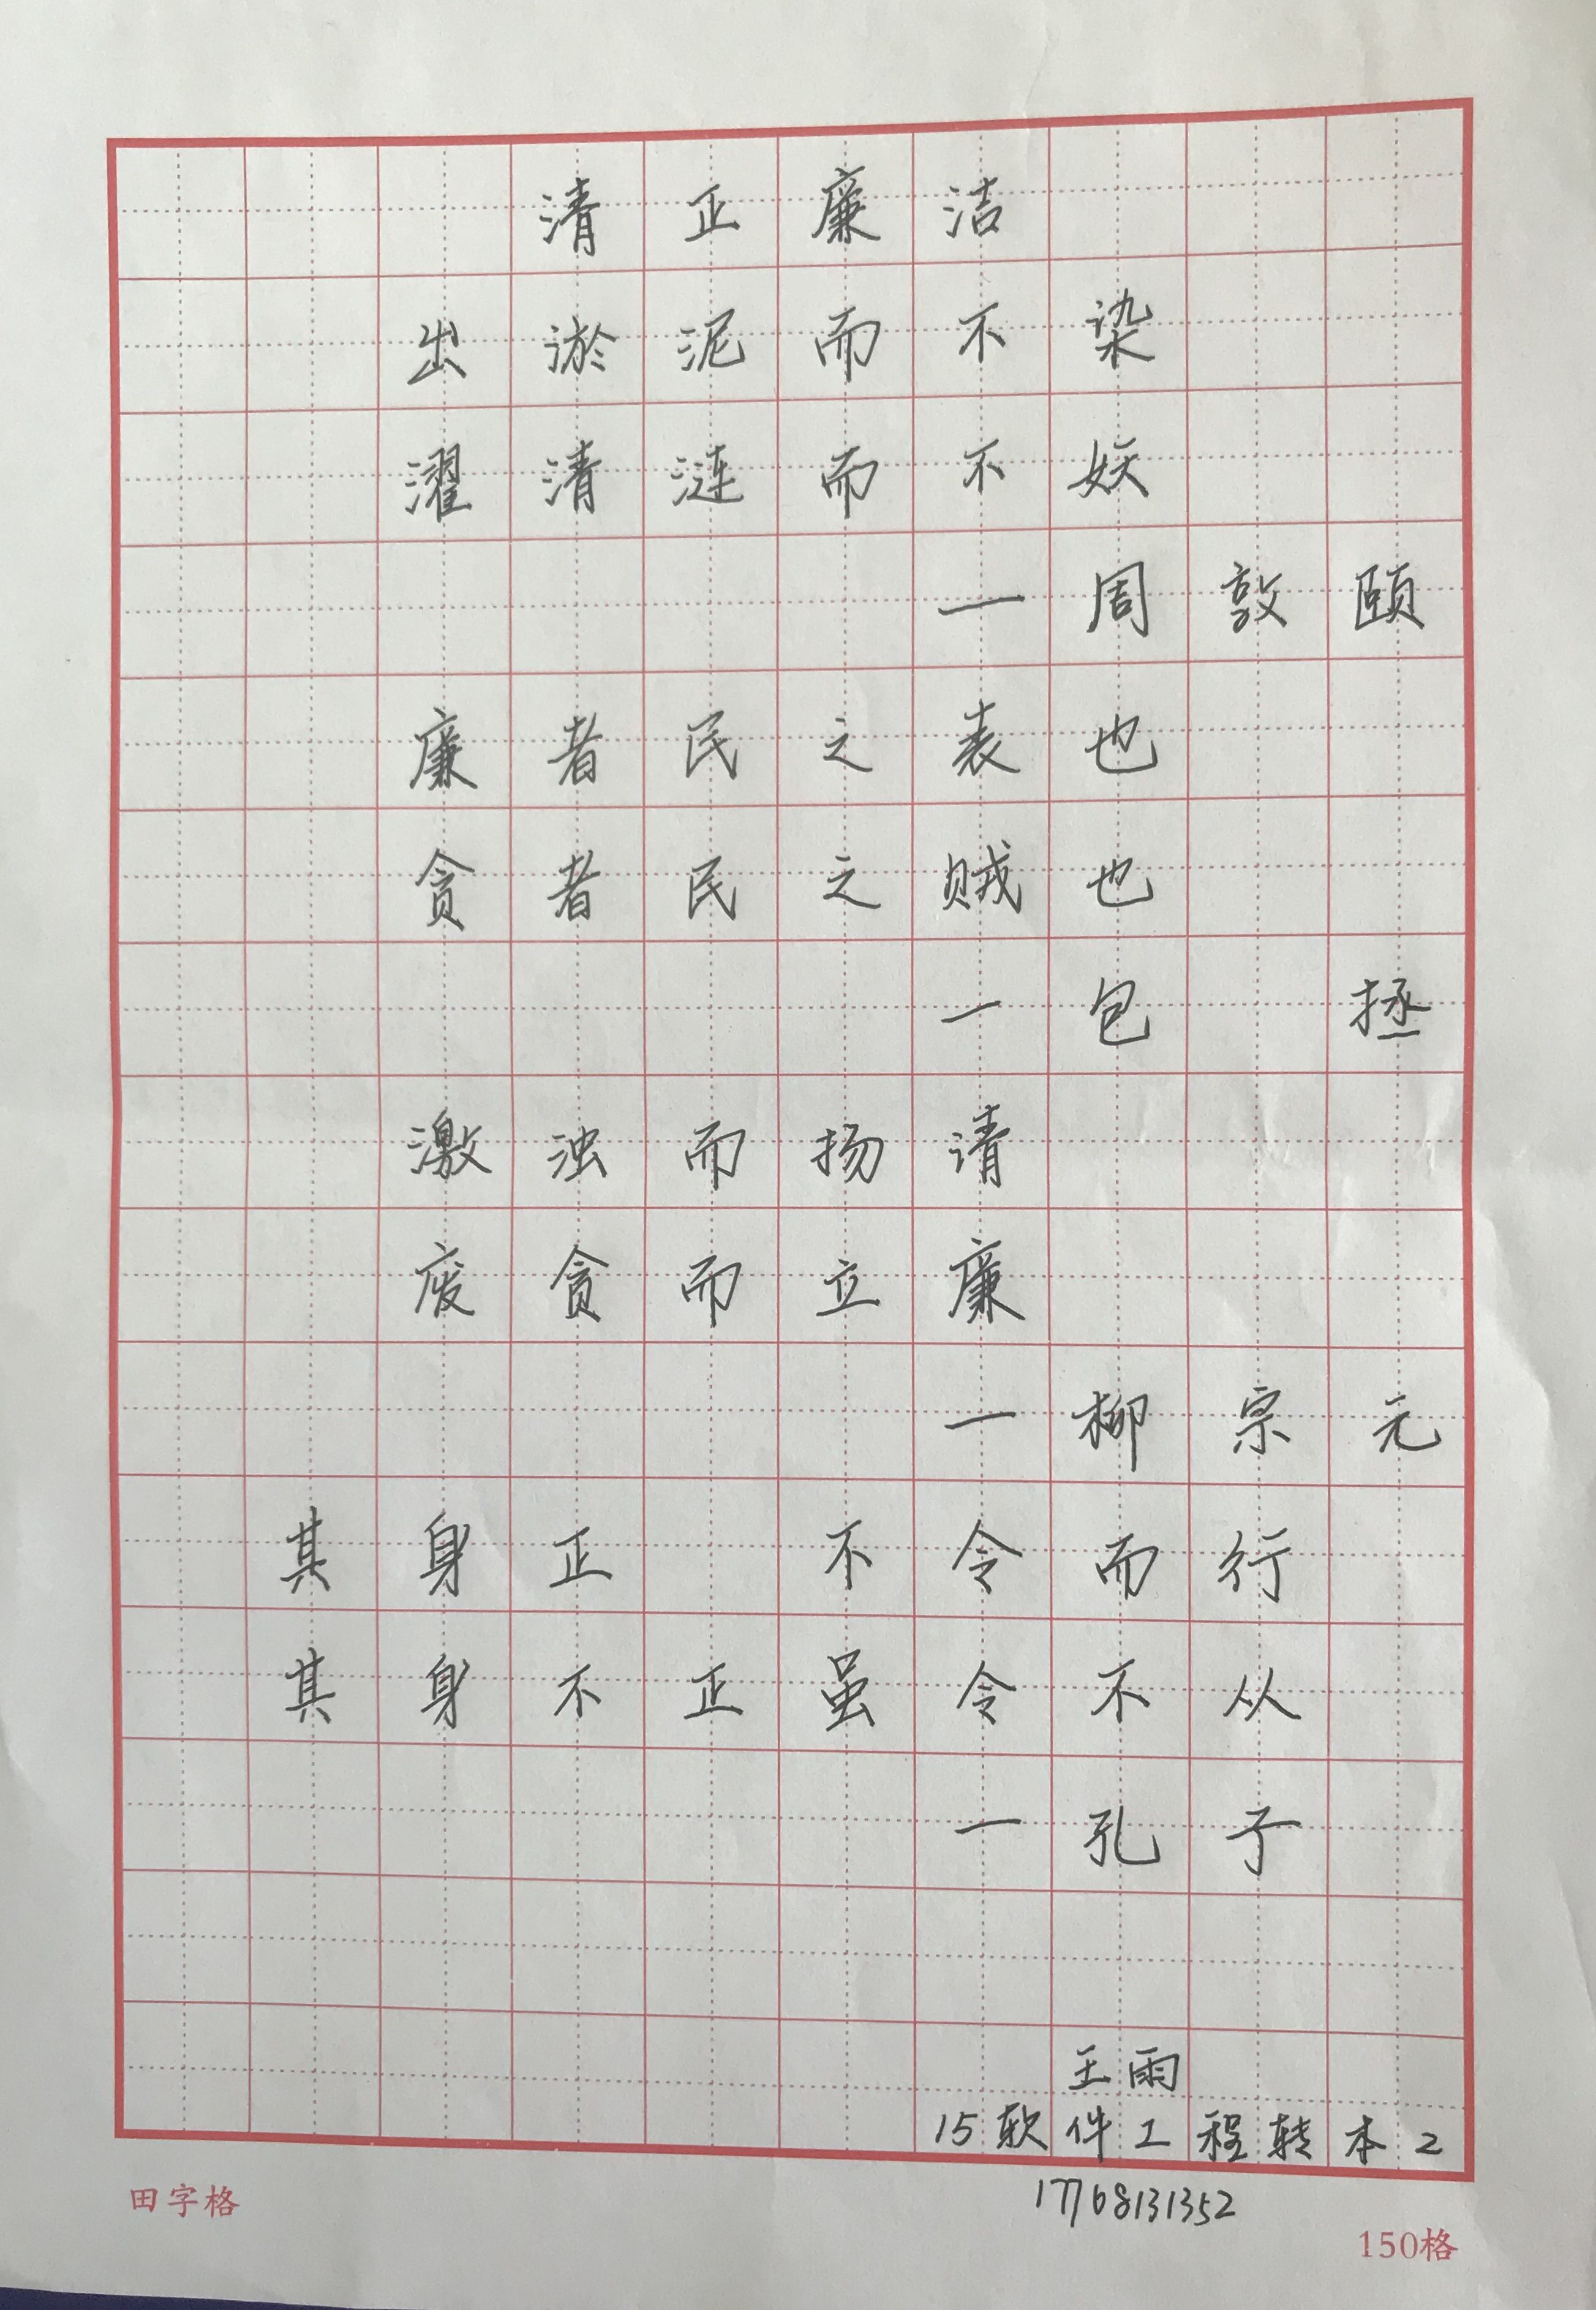 清正廉洁
出淤泥而不染
濯清涟而不妖
一周敦颐
廉者民之表也
贪者民之贼也
一包 拯
激浊而扬请
废贪而立廉
一柳宗元
其身正 不令而行
其身不正虽令不从
一孔子
王雨
15软件工程转本2
17768131352
田字格
150格